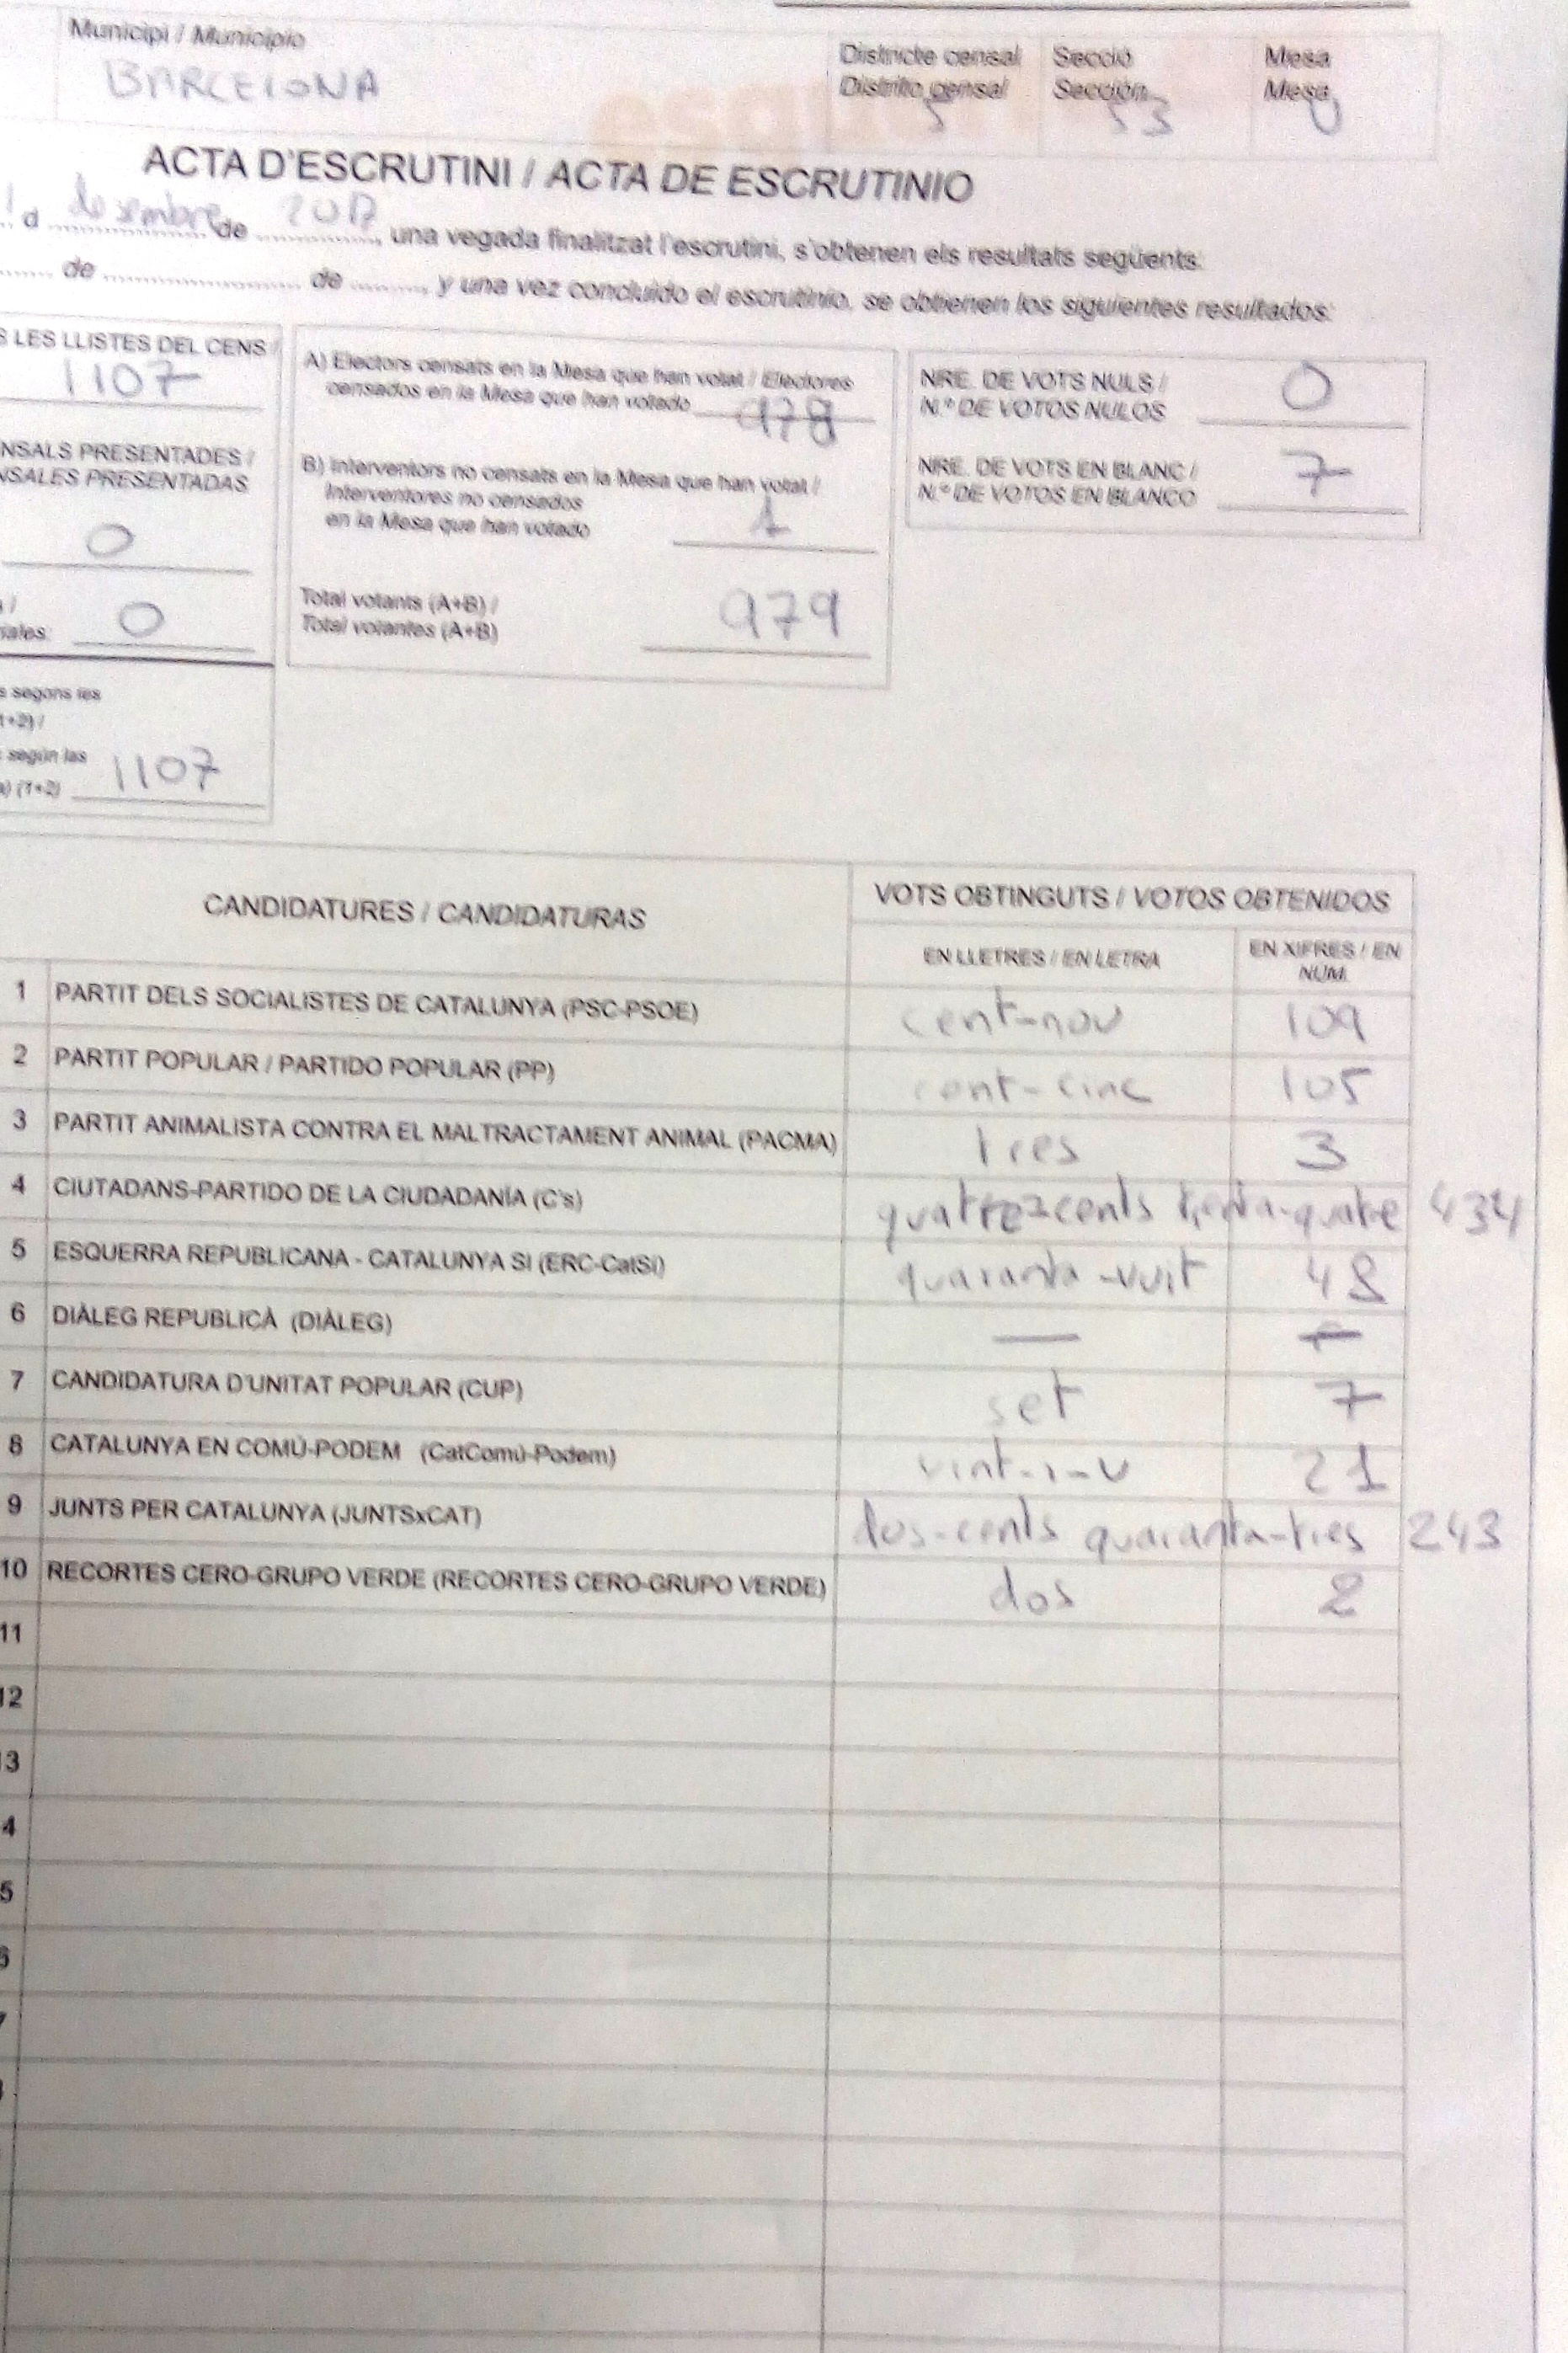 Municipi / Municipio
BARCELONA
Districte censal
Distrito censal
5
Secció
Sección
53
Mesa
Mesa
U
ACTA D'ESCRUTINI / ACTA DE ESCRUTINIO
d desembre de 2017, una vegada finalitzat l'escrutini, s'obtenen els resultats següents:
de de , y una vez concluido el escrutinio, se obtienen los siguientes resultados:
S LES LLISTES DEL CENS /
1107
NSALS PRESENTADES /
NSALES PRESENTADAS
0
/
iales: 0
s segons les
1+2) /
según las
(1+2) 1107
A) Electors censats en la Mesa que han votat / Electores
censados en la Mesa que han votado 978
B) Interventors no censats en la Mesa que han votat /
Interventores no censados
en la Mesa que han votado 1
Total votants (A+B) /
Total votantes (A+B) 979
NRE. DE VOTS NULS /
N.º DE VOTOS NULOS 0
NRE. DE VOTS EN BLANC /
N.º DE VOTOS EN BLANCO 7
CANDIDATURES / CANDIDATURAS
VOTS OBTINGUTS / VOTOS OBTENIDOS
EN LLETRES / EN LETRA
EN XIFRES / EN
NÚM.
1 PARTIT DELS SOCIALISTES DE CATALUNYA (PSC-PSOE) cent-nou 109
2 PARTIT POPULAR / PARTIDO POPULAR (PP) cent-cinc 105
3 PARTIT ANIMALISTA CONTRA EL MALTRACTAMENT ANIMAL (PACMA) tres 3
4 CIUTADANS-PARTIDO DE LA CIUDADANÍA (C's) quatre-cents trenta-quatre 434
5 ESQUERRA REPUBLICANA - CATALUNYA SÍ (ERC-CatSí) quaranta-vuit 48
6 DIÀLEG REPUBLICÀ (DIÀLEG) —
7 CANDIDATURA D'UNITAT POPULAR (CUP) set 7
8 CATALUNYA EN COMÚ-PODEM (CatComú-Podem) vint-i-u 21
9 JUNTS PER CATALUNYA (JUNTSxCAT) dos-cents quaranta-tres 243
10 RECORTES CERO-GRUPO VERDE (RECORTES CERO-GRUPO VERDE) dos 2
11
12
3
4
5